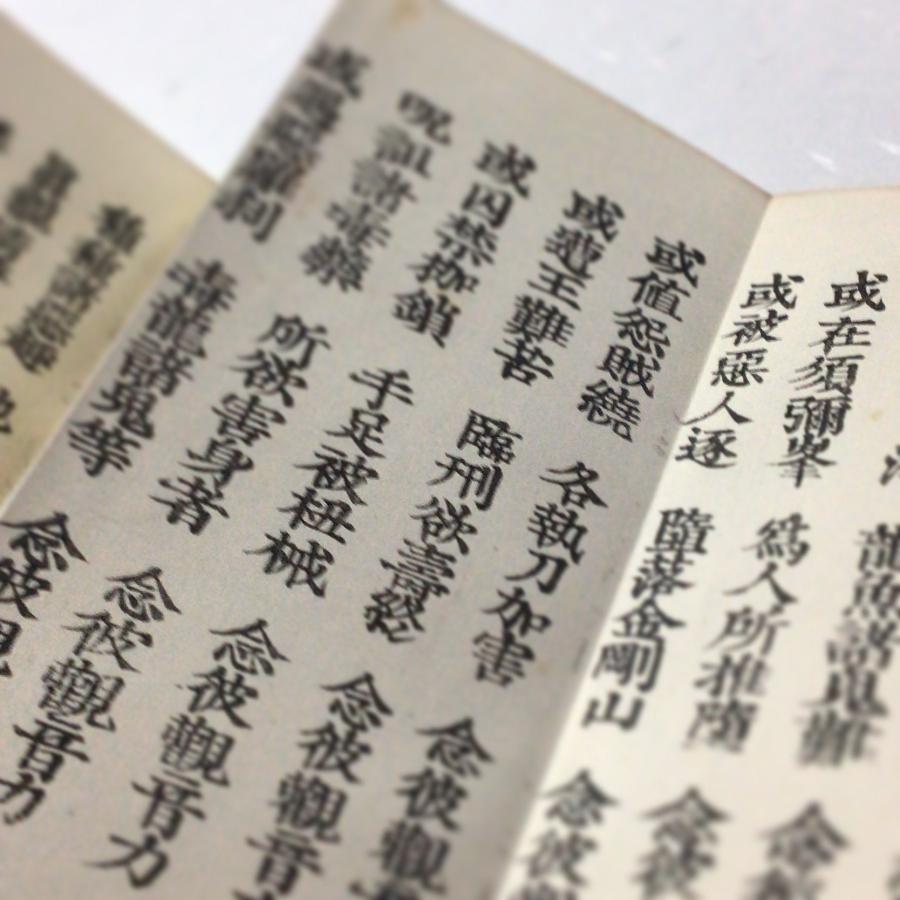 龍魚諸鬼難
或在須彌峯 爲人所推墮 念彼
或被惡人逐 墮落金剛山 念彼觀
或値怨賊繞 各執刀加害 念彼觀
或遭王難苦 臨刑欲壽終 念彼觀音
或囚禁枷鎖 手足被杻械 念彼觀音力
呪詛諸毒藥 所欲害身者 念彼觀音力
或遇惡羅刹 毒龍諸鬼等 念彼觀